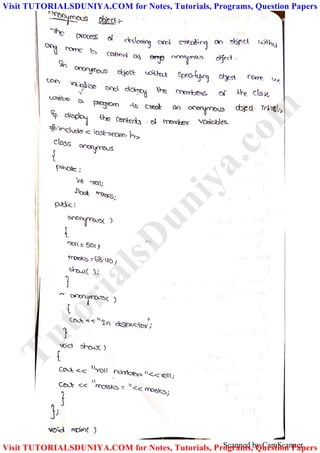 Visit TUTORIALSDUNIYA.COM for Notes, Tutorials, Programs, Question Papers
Anonymous object :-
The process of declaring and creating an object withu
any name is called as anonymous object.
In anonymous object without specifying object name we
can initialize and destroy the members of the class
write a program to creat an anonymous object
& display the contents of member variables.
#include <iostream.h>
class anonymous
{
private:
int roll;
float marks;
public:
anonymous( )
{
roll = 501;
marks = 68.40;
show( );
}
~ anonymous( )
{
cout << "In destructor;
}
void show( )
{
cout << "roll number= "<<roll;
cout << "marks = "<< marks;
}
};
void main( )
TutorialsDuniya.com
Scanned by CamScanner
Visit TUTORIALSDUNIYA.COM for Notes, Tutorials, Programs, Question Papers